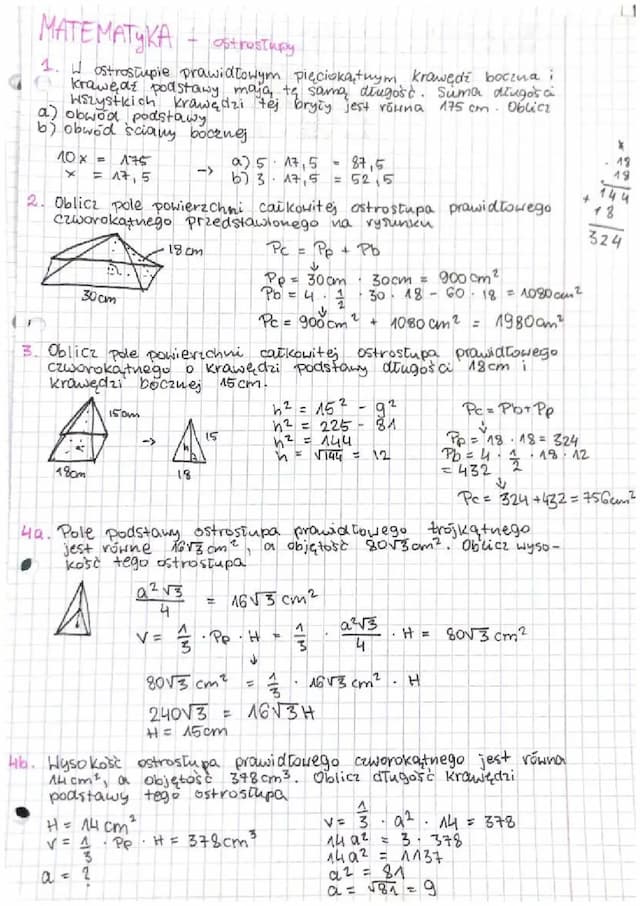 MATEMATYKA - ostrosłupy
1. W ostrosłupie prawidłowym pięciokątnym krawędź boczna i
krawędź podstawy mają tę samą długość. Suma długości
wszystkich krawędzi tej bryły jest równa 175 cm. Oblicz
a) obwód podstawy
b) obwód ściany bocznej
10x = 175
x = 17,5
→ a) 5 · 17,5 = 87,5
b) 3 · 17,5 = 52,5
· 18
18
+ 144
18
324
2. Oblicz pole powierzchni całkowitej ostrosłupa prawidłowego
czworokątnego przedstawionego na rysunku
18 cm
30cm
Pc = Pp + Pb
Pp = 30cm · 30cm = 900cm²
Pb = 4 · 1/2 · 30 · 18 - 60 · 18 = 1080cm²
Pc = 900cm² + 1080cm² = 1980cm²
3. Oblicz pole powierzchni całkowitej ostrosłupa prawidłowego
czworokątnego o krawędzi podstawy długości 18cm i
krawędzi bocznej 15cm.
15cm
18cm
→
15
h
18
h² = 15² - 9²
h² = 225 - 81
h² = 144
h = √144 = 12
Pc = Pb + Pp
Pp = 18 · 18 = 324
Pb = 4 · 1/2 · 18 · 12
= 432
Pc = 324 + 432 = 756cm²
4a. Pole podstawy ostrosłupa prawidłowego trójkątnego
jest równe 16√3 cm², a objętość 80√3cm². Oblicz wyso-
kość tego ostrosłupa
a²√3/4 = 16√3 cm²
V = 1/3 · Pp · H = 1/3 · a²√3/4 · H = 80√3 cm²
80√3 cm² = 1/3 · 16√3 cm² · H
240√3 = 16√3H
H = 15cm
4b. Wysokość ostrosłupa prawidłowego czworokątnego jest równa
14cm², a objętość 378cm³. Oblicz długość krawędzi
podstawy tego ostrosłupa
H = 14cm²
V = 1/3 · Pp · H = 378cm³
a = ?
V = 1/3 · a² · 14 = 378
14a² = 3 · 378
14a² = 1137
a² = 81
a = √81 = 9